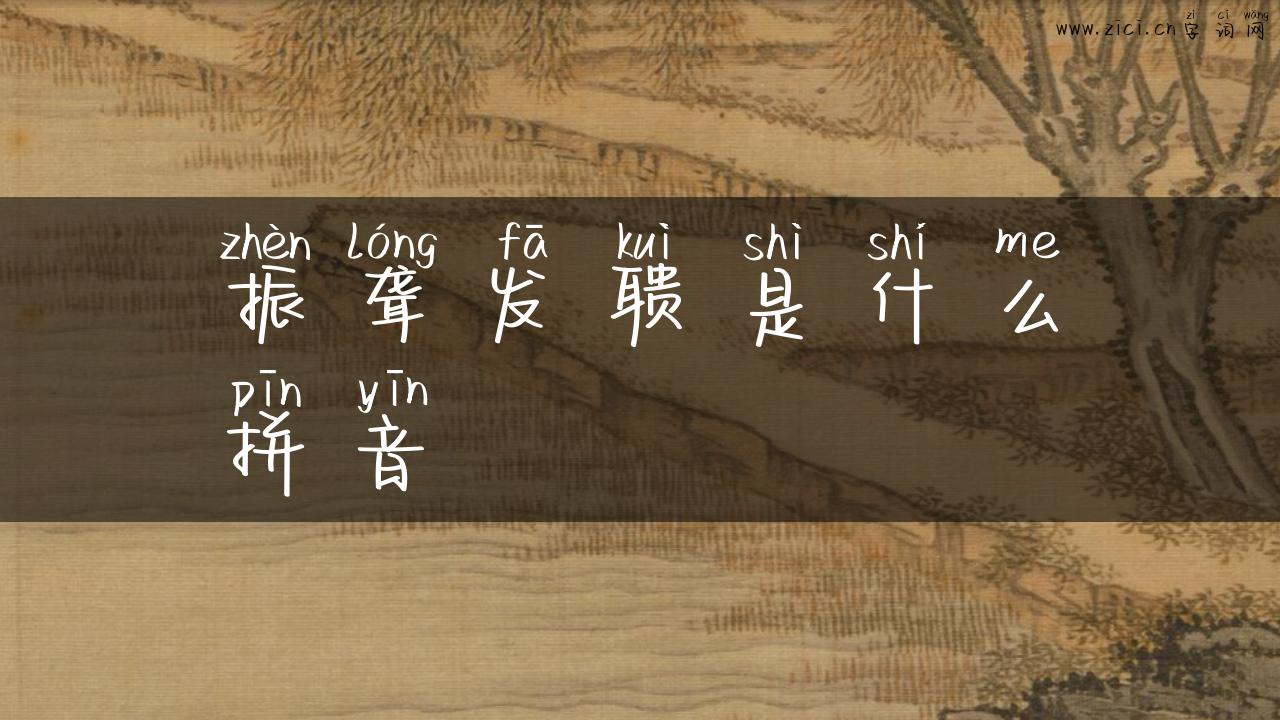 zì cí wǎng
www.zici.cn字词网
zhèn lóng fā kuì shì shí me
振聋发聩是什么
pīn yīn
拼音